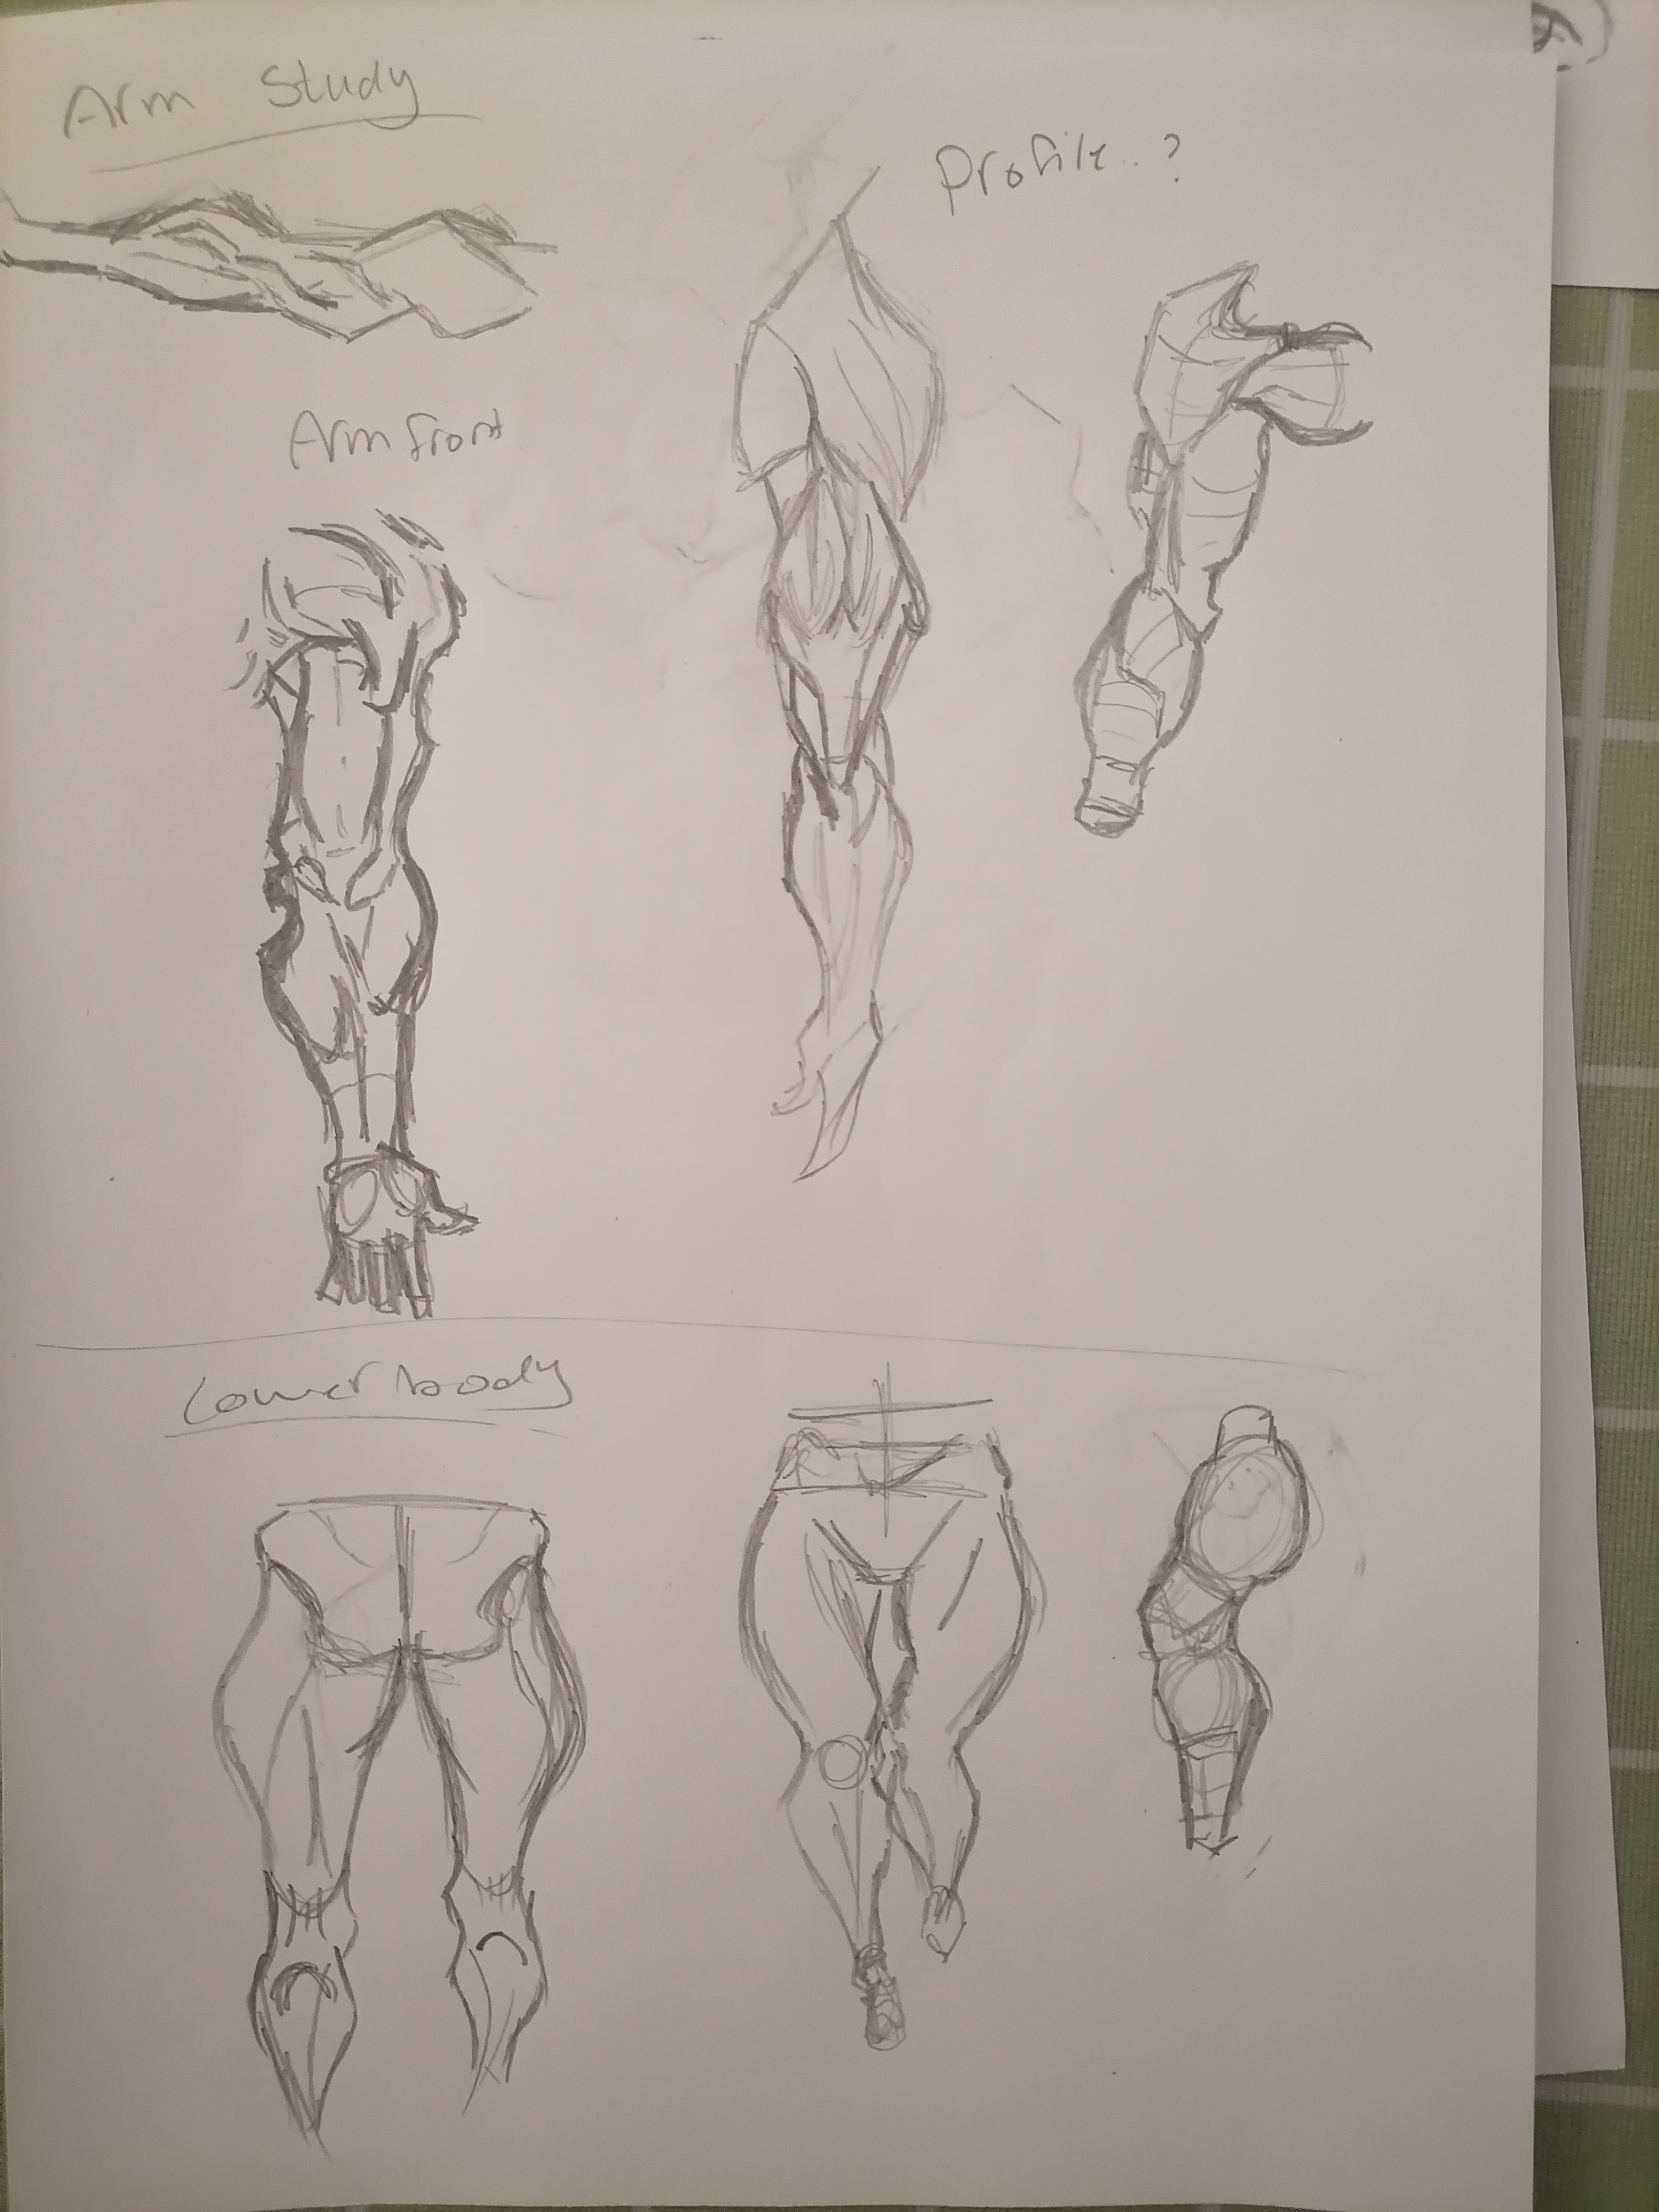 Arm Study
Profile..?
Arm front
Lower body